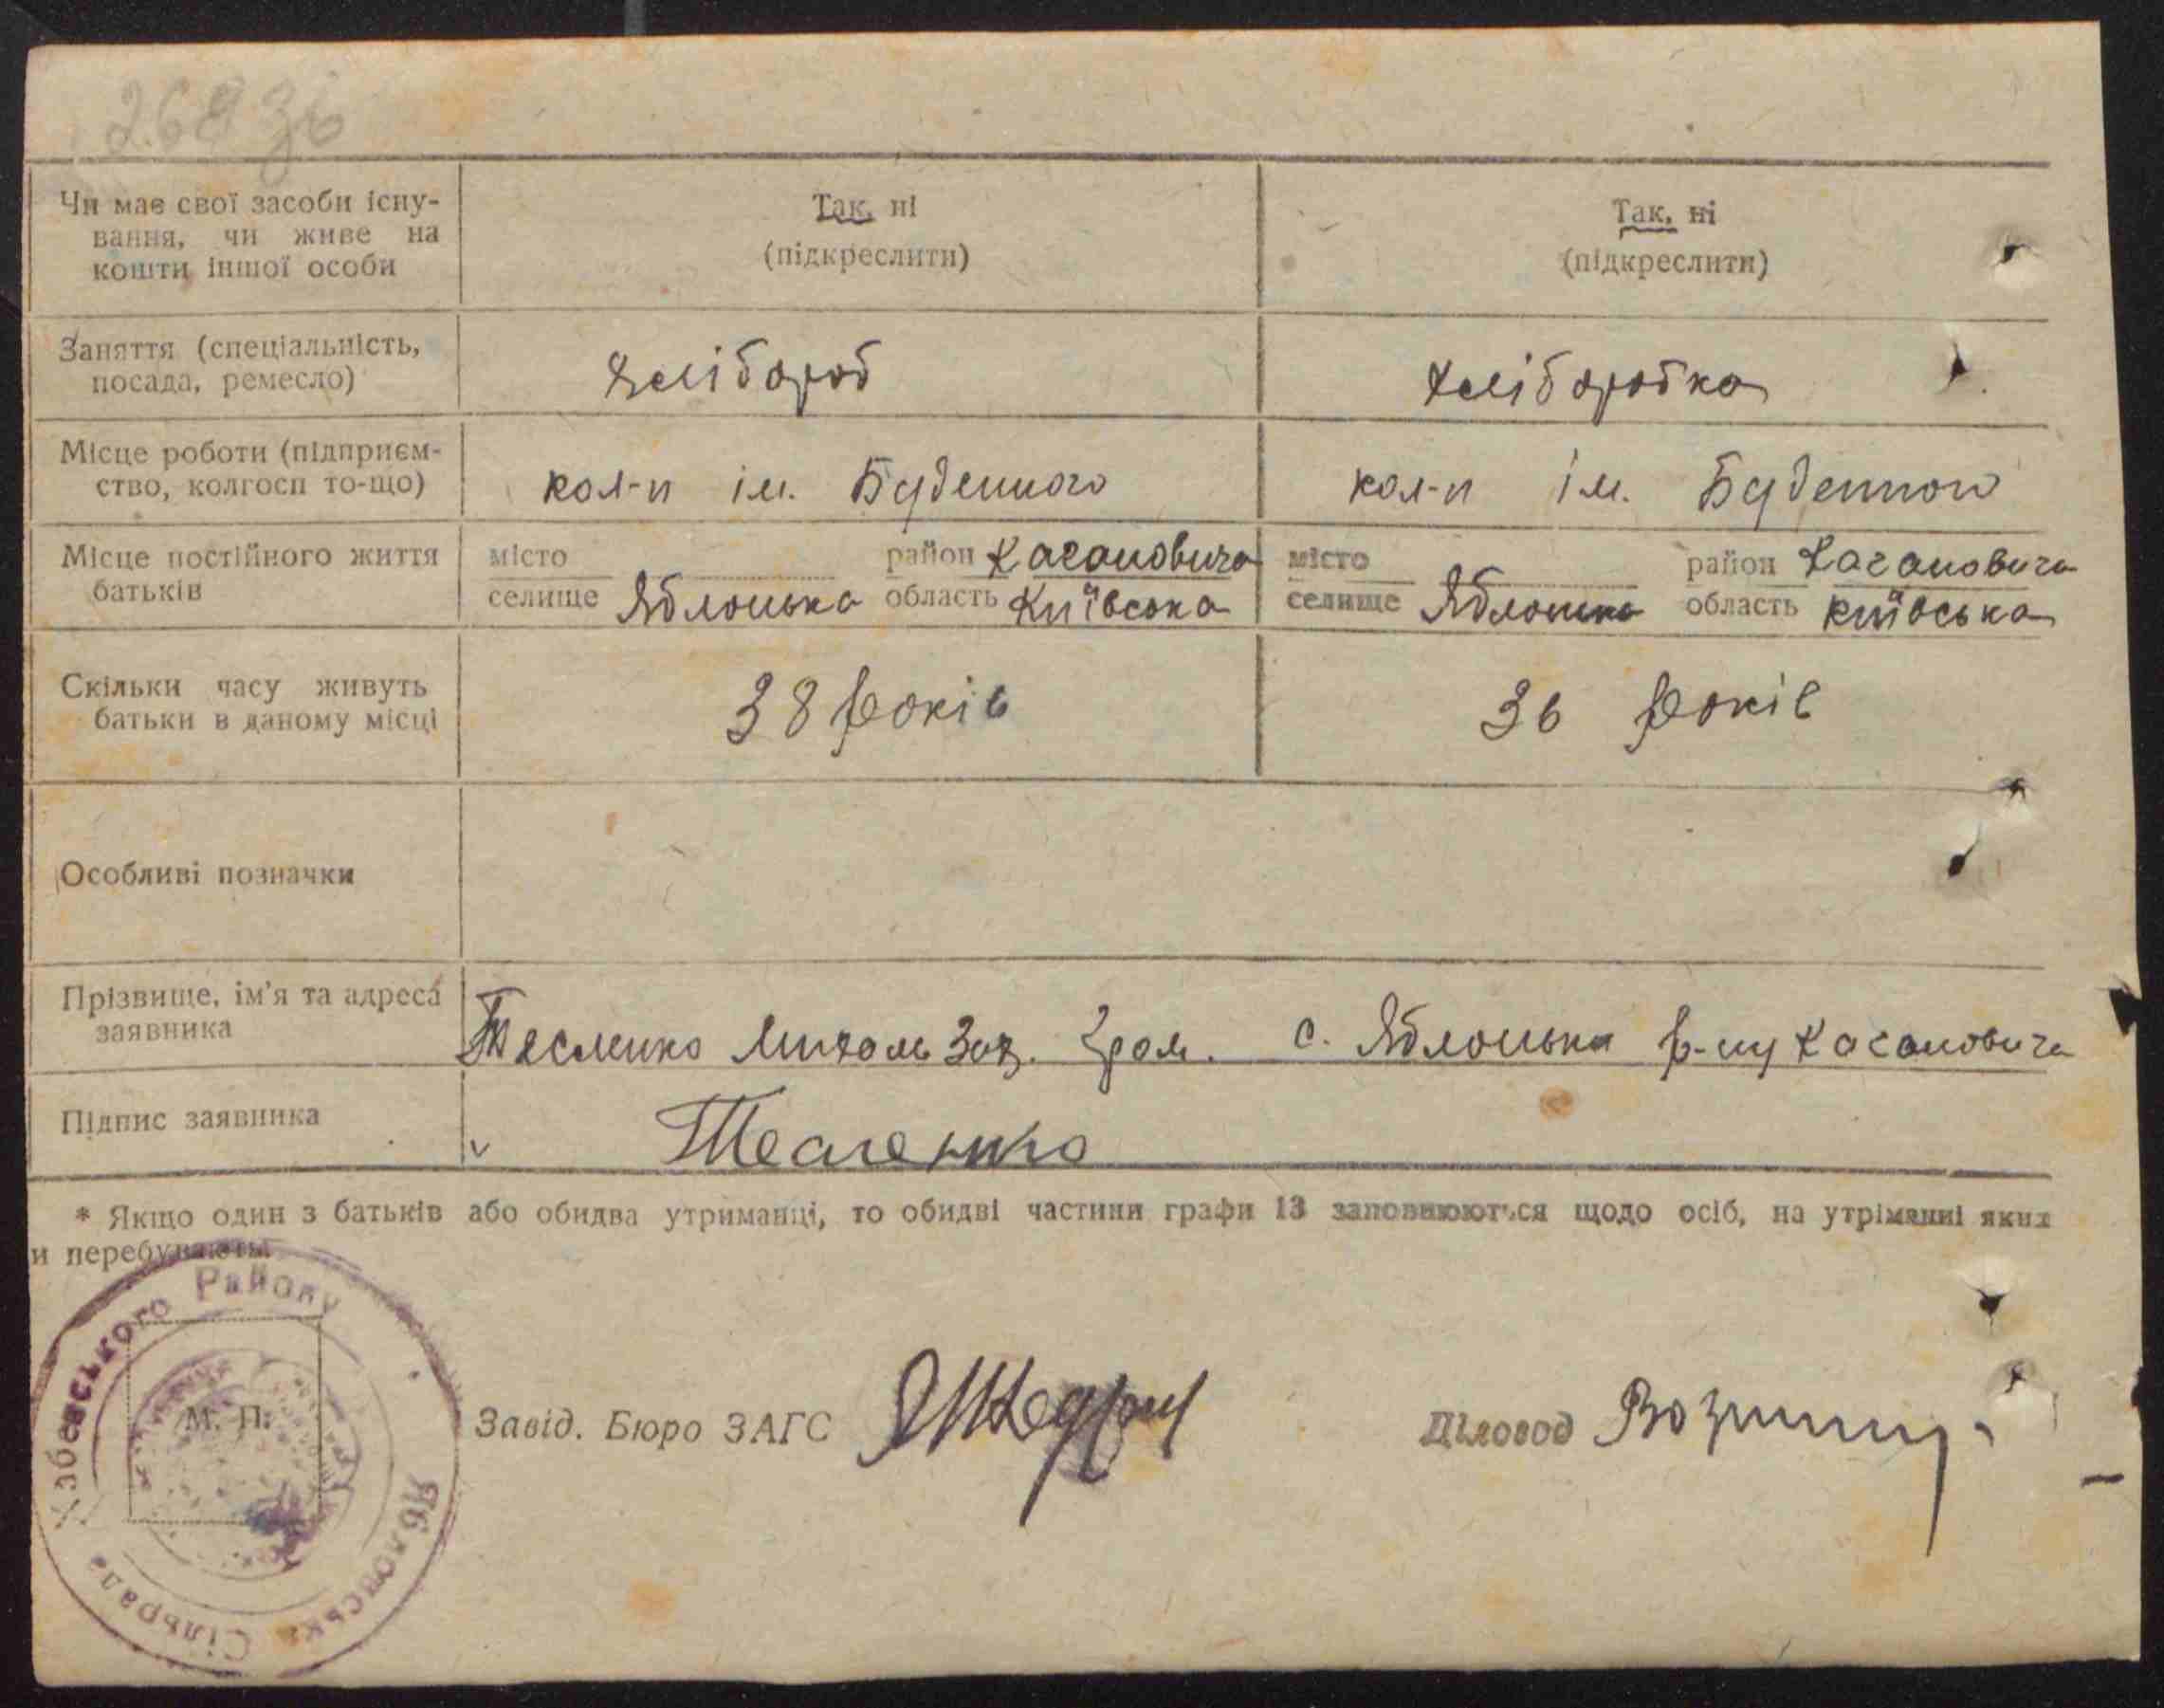 268 зв
Чи має свої засоби існу-
вання, чи живе на
кошти іншої особи
Так, ні
(підкреслити)
Так, ні
(підкреслити)
Заняття (спеціальність,
посада, ремесло)
Хлібороб
Хліборобка
Місце роботи (підприєм-
ство, колгосп то-що)
кол-п ім. Буденного
кол-п ім. Буденного
Місце постійного життя
батьків
місто
селище Яблонька
район Кагановича
область Київська
місто
селище Яблонька
район Кагановича
область Київська
Скільки часу живуть
батьки в даному місці
38 років
36 років
Особливі позначки
Прізвище, ім'я та адреса
заявника
с. Яблонька р-ну Кагановича
Підпис заявника
Тесленко
* Якщо один з батьків або обидва утриманці, то обидві частини графи 13 заповнюються щодо осіб, на утріманні яких
и перебувають.
Хабенського Району
Яблонська Сільрада
М. П.
Завід. Бюро ЗАГС
Діловод